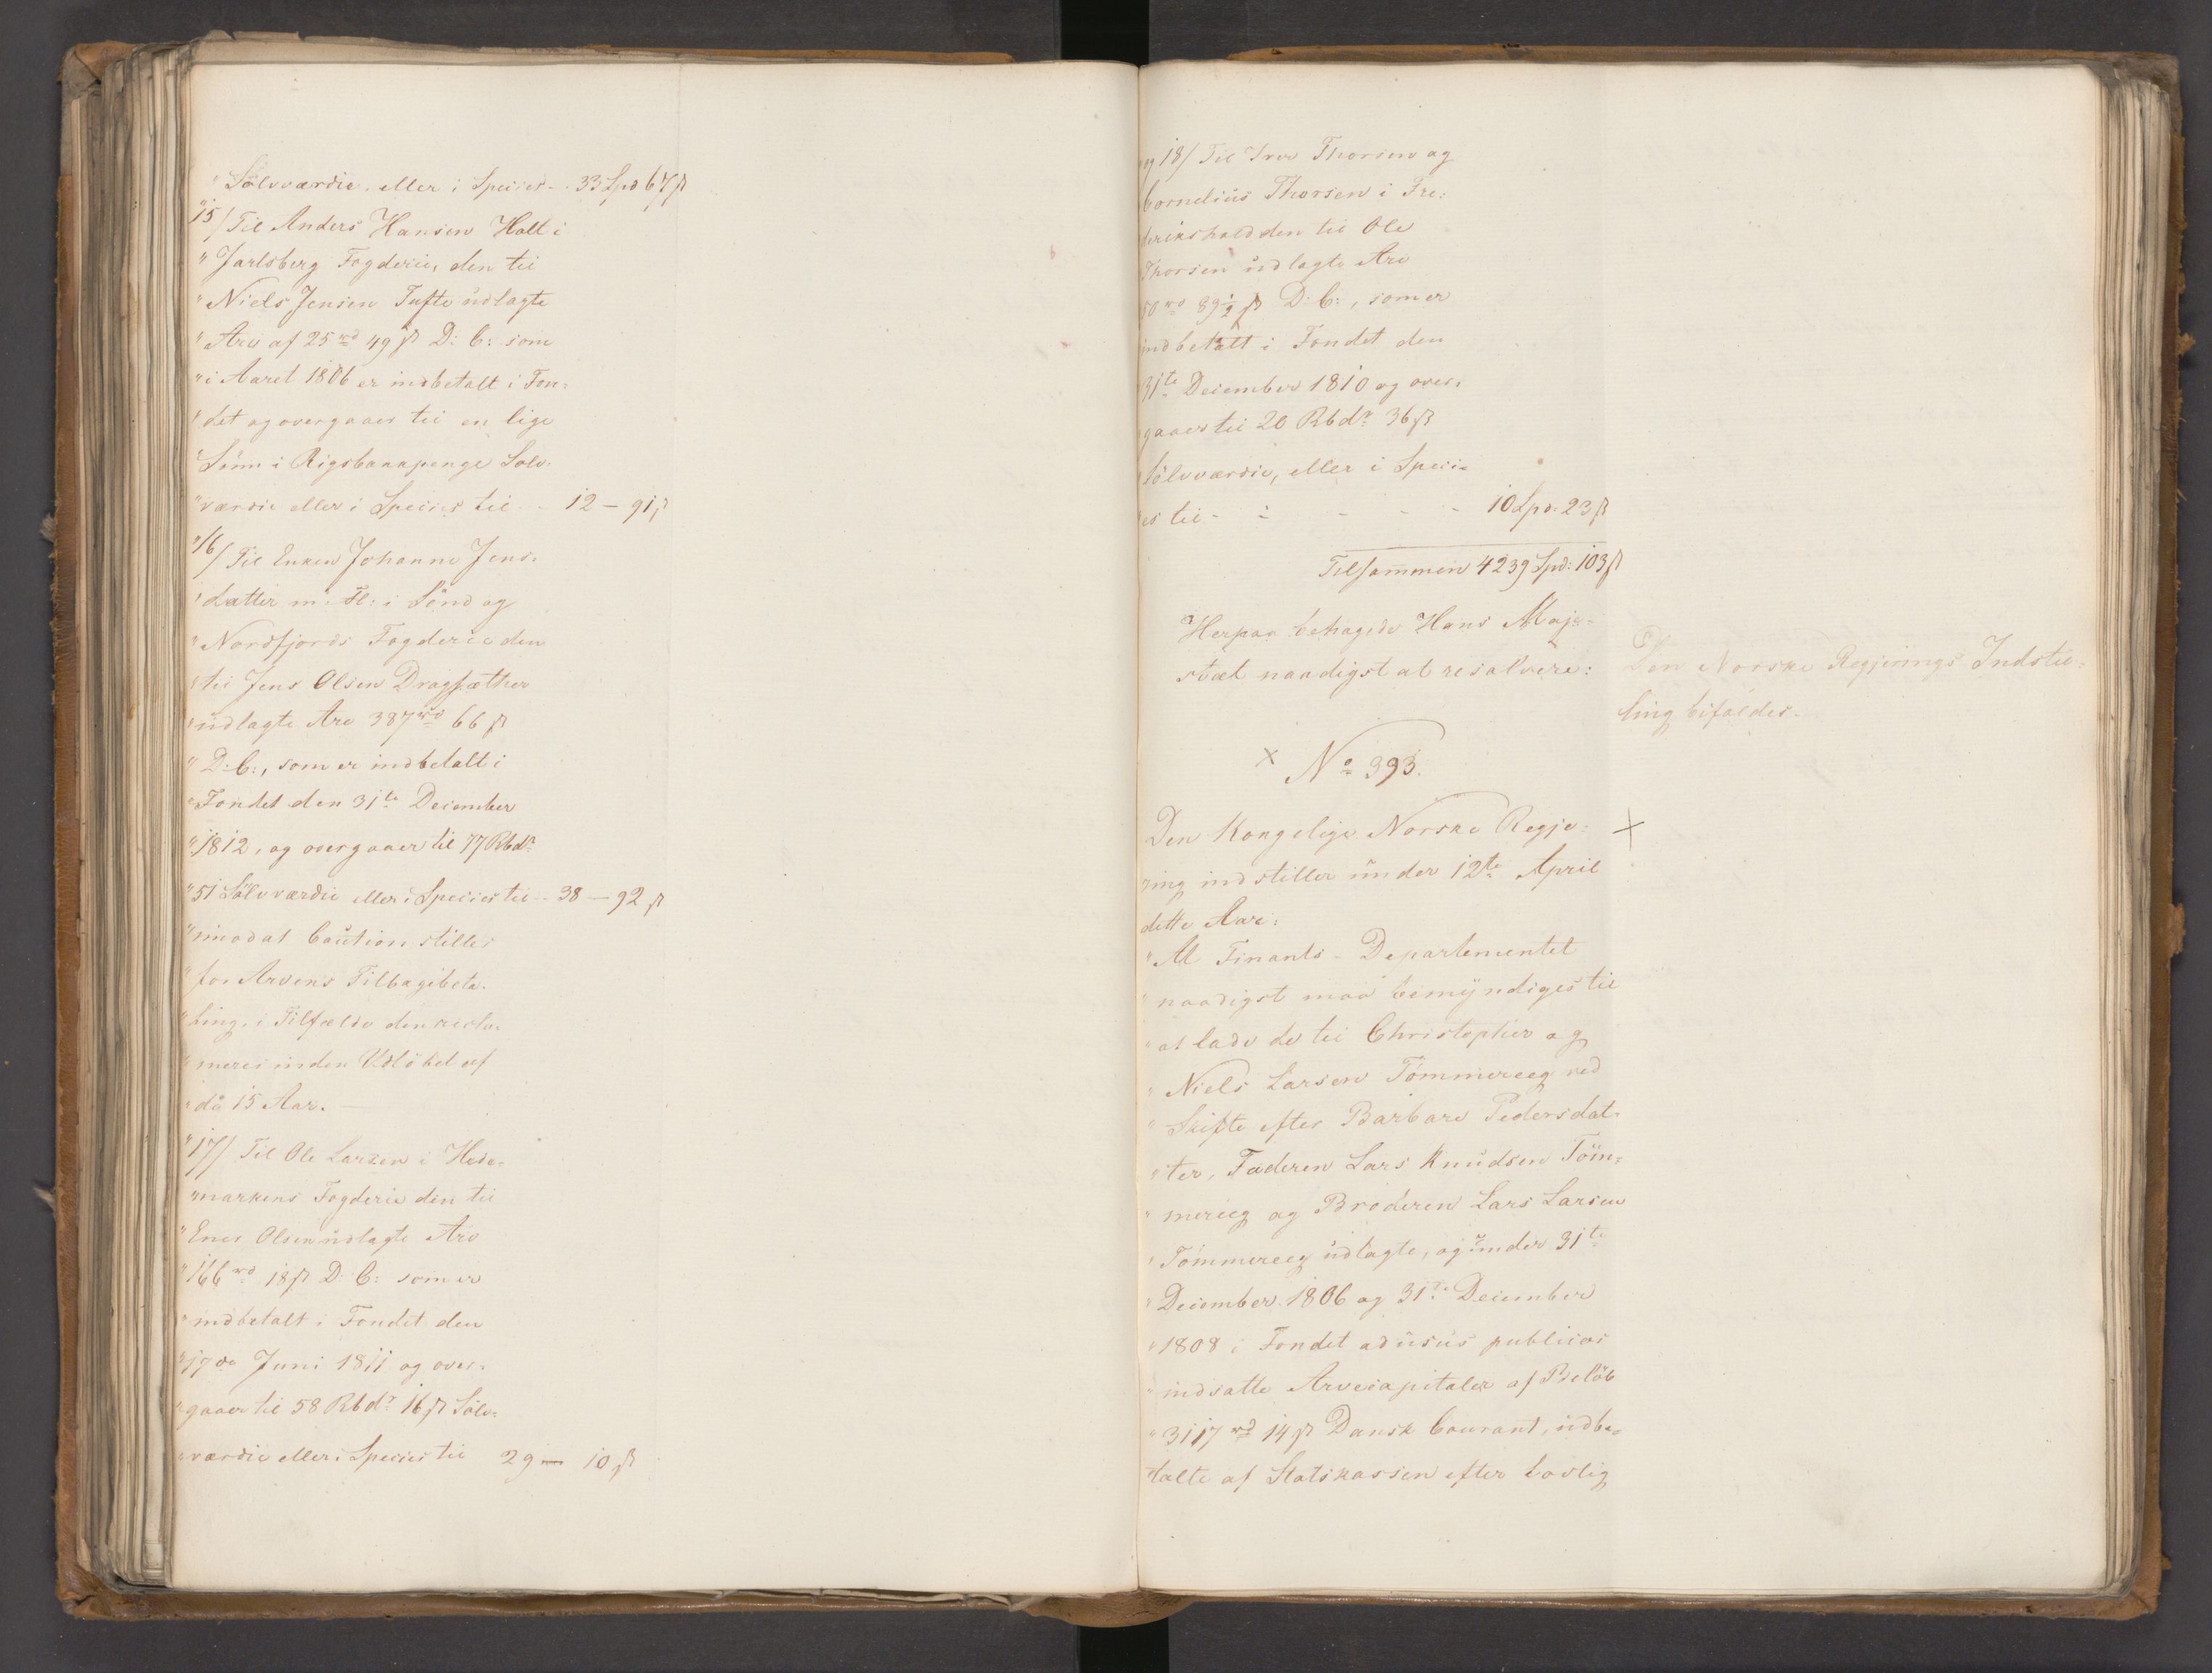 " Sölvværdie. eller i Species - - 33 Spd 67 ß
" 15/ Til Anders Hansen Holt i
" Jarlsberg Fogderie, den til
" Niels Jensen Tufte udlagte
" Arv af 25 rd 49 ß D: C: som
" i Aaret 1806 er indbetalt i Fon=
" det og overgaaer til en lige
" Sum i Rigsbankpenge Sölv-
" værdie eller i Species til - - 12 — 91 ß
" 16/ Til Enken Johanne Jens-
" datter m: Fl: i Sönd og
" Nordfjords Fogderie den
" til Jens Olsen Dragsæther
" udlagte Arv 387 rd 66 ß
" D: C:, som er indbetalt i
" Fondet den 31te December
" 1812, og overgaaer til 77 Rbdr
" 51 Sölvværdie eller i Species til - - 38 — 92 ß
" imod at Caution stilles
" for Arvens Tilbagebeta-
" ling, i Tilfælde den recla-
" meres inden Udlöbet af
" de 15 Aar. —
" 17/ Til Ole Larsen i Hede-
" markens Fogderie den til
" Ener Olsen udlagte Arv
" 166 rd 18 ß D: C: som er
" indbetalt i Fondet den
" 17de Juni 1811 og over-
" gaaer til 58 Rbdr 16 ß Sölv-
" værdie eller i Species til 29 — 10 ß
" og 18/ Til Iver Thorsen og
Cornelius Thorsen i Fre-
derikshald den til Ole
Thorsen udlagte Arv
50 rd 89½ ß D: C:, som er
indbetalt i Fondet den
31te December 1810 og over-
gaaer til 20 Rbdr 36 ß
Sölvværdie, eller i Speci-
es til - - - - - 10 Spd. 23 ß
Tilsammen 4239 Spd: 103 ß
Herpaa behagede Hans Maje-
stæt naadigst at resolvere:
Den Norske Regjerings Indstil-
ling bifaldes.
× No 393.
Den Kongelige Norske Regje- ×
ring indstiller under 12te April
dette Aar:
" At Finants-Departementet
" naadigst maa bemyndiges til
" at lade de til Christopher og
" Niels Larsen Tömmereeg ved
" Skifte efter Barbare Pedersdat-
" ter, Faderen Lars Knudsen Töm-
" mereeg og Broderen Lars Larsen
" Tömmereeg udlagte, og under 31te
" December 1806 og 31te December
" 1808 i Fondet ad usus publicos
" indsatte Arvecapitaler af Belöb
" 3117 rd 14 ß Dansk Courant, udbe-
" talte af Statskassen efter lovlig